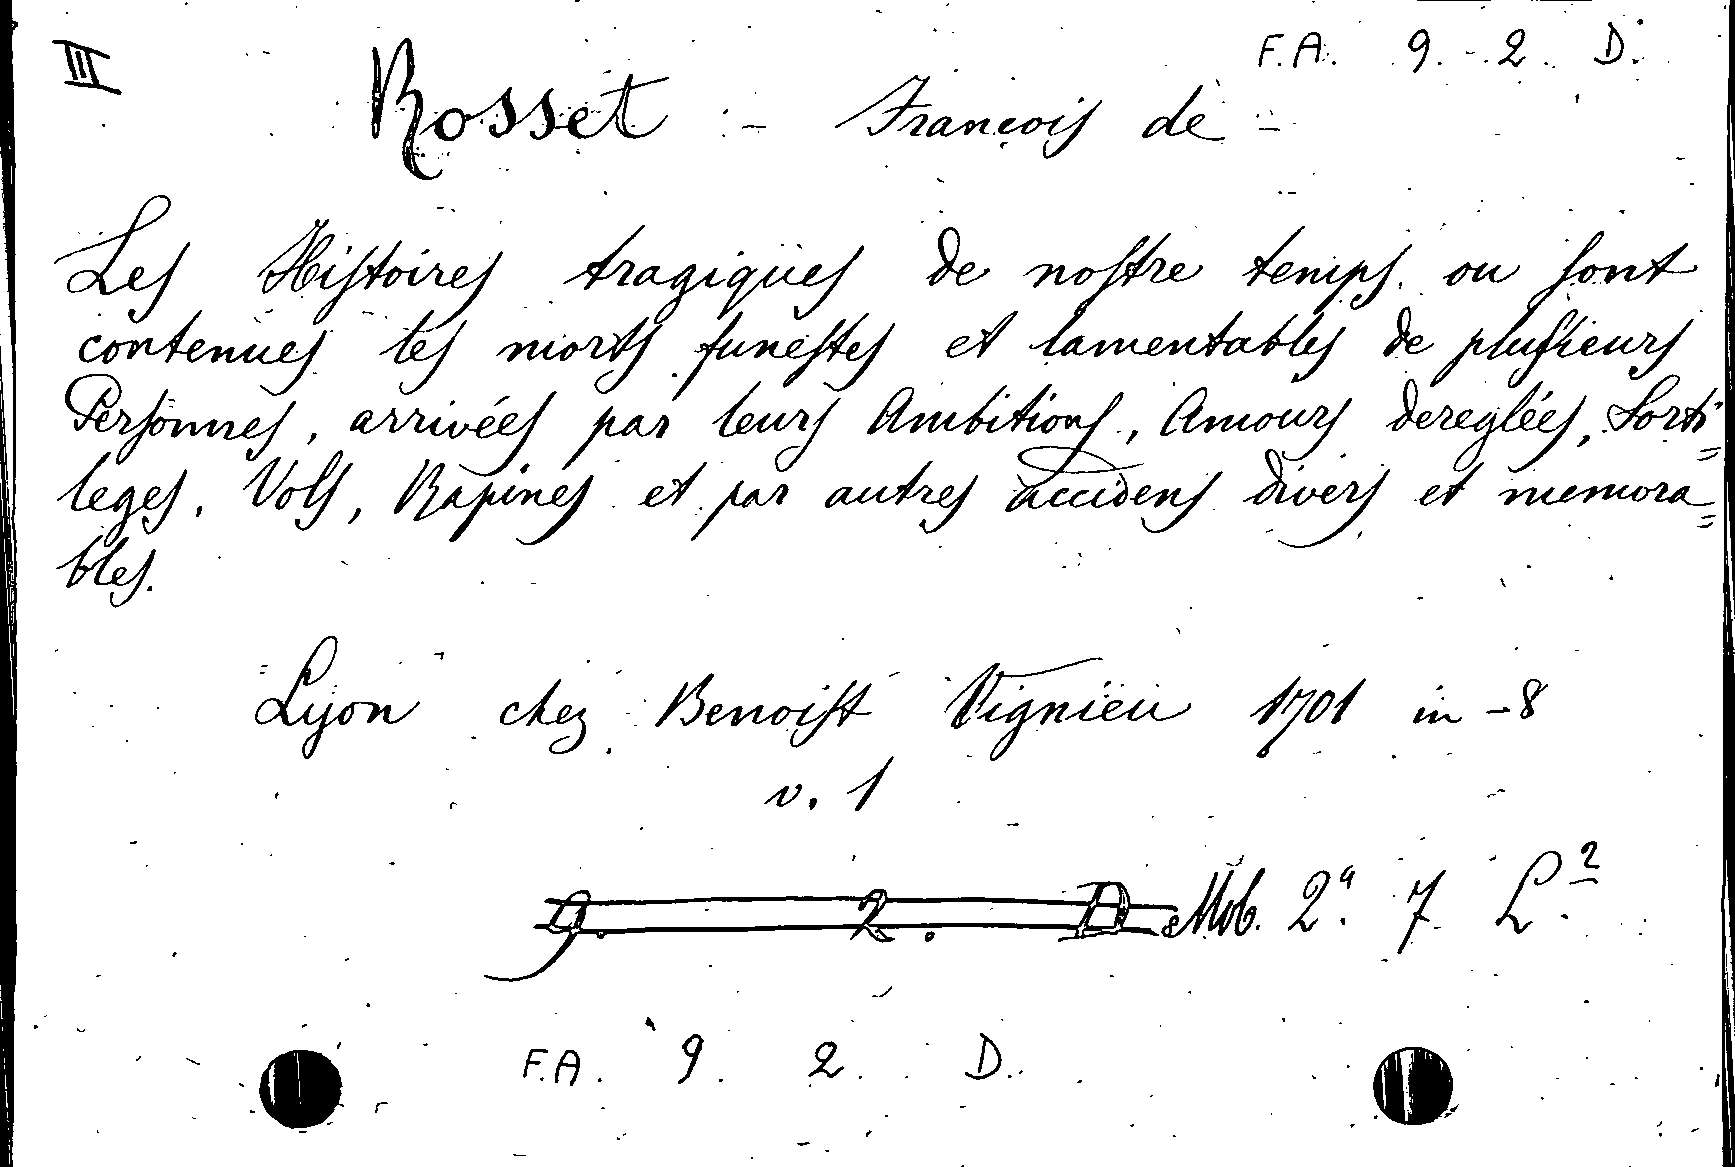 III F.A. 9. 2. D.
Rosset - François de -
Les Histoires tragiques de nostre temps. ou sont
contenues les morts funestes et lamentables de plusieurs
Personnes, arrivées par leurs Ambitions, Amours dereglées, Sorti=
leges, Vols, Rapines et par autres accidens divers et memora=
bles.
Lyon chez Benoist Vignieu 1701 in-8
v. 1
9. 2. D Mob. 2ª. 7 L.2
F.A. 9. 2. D.